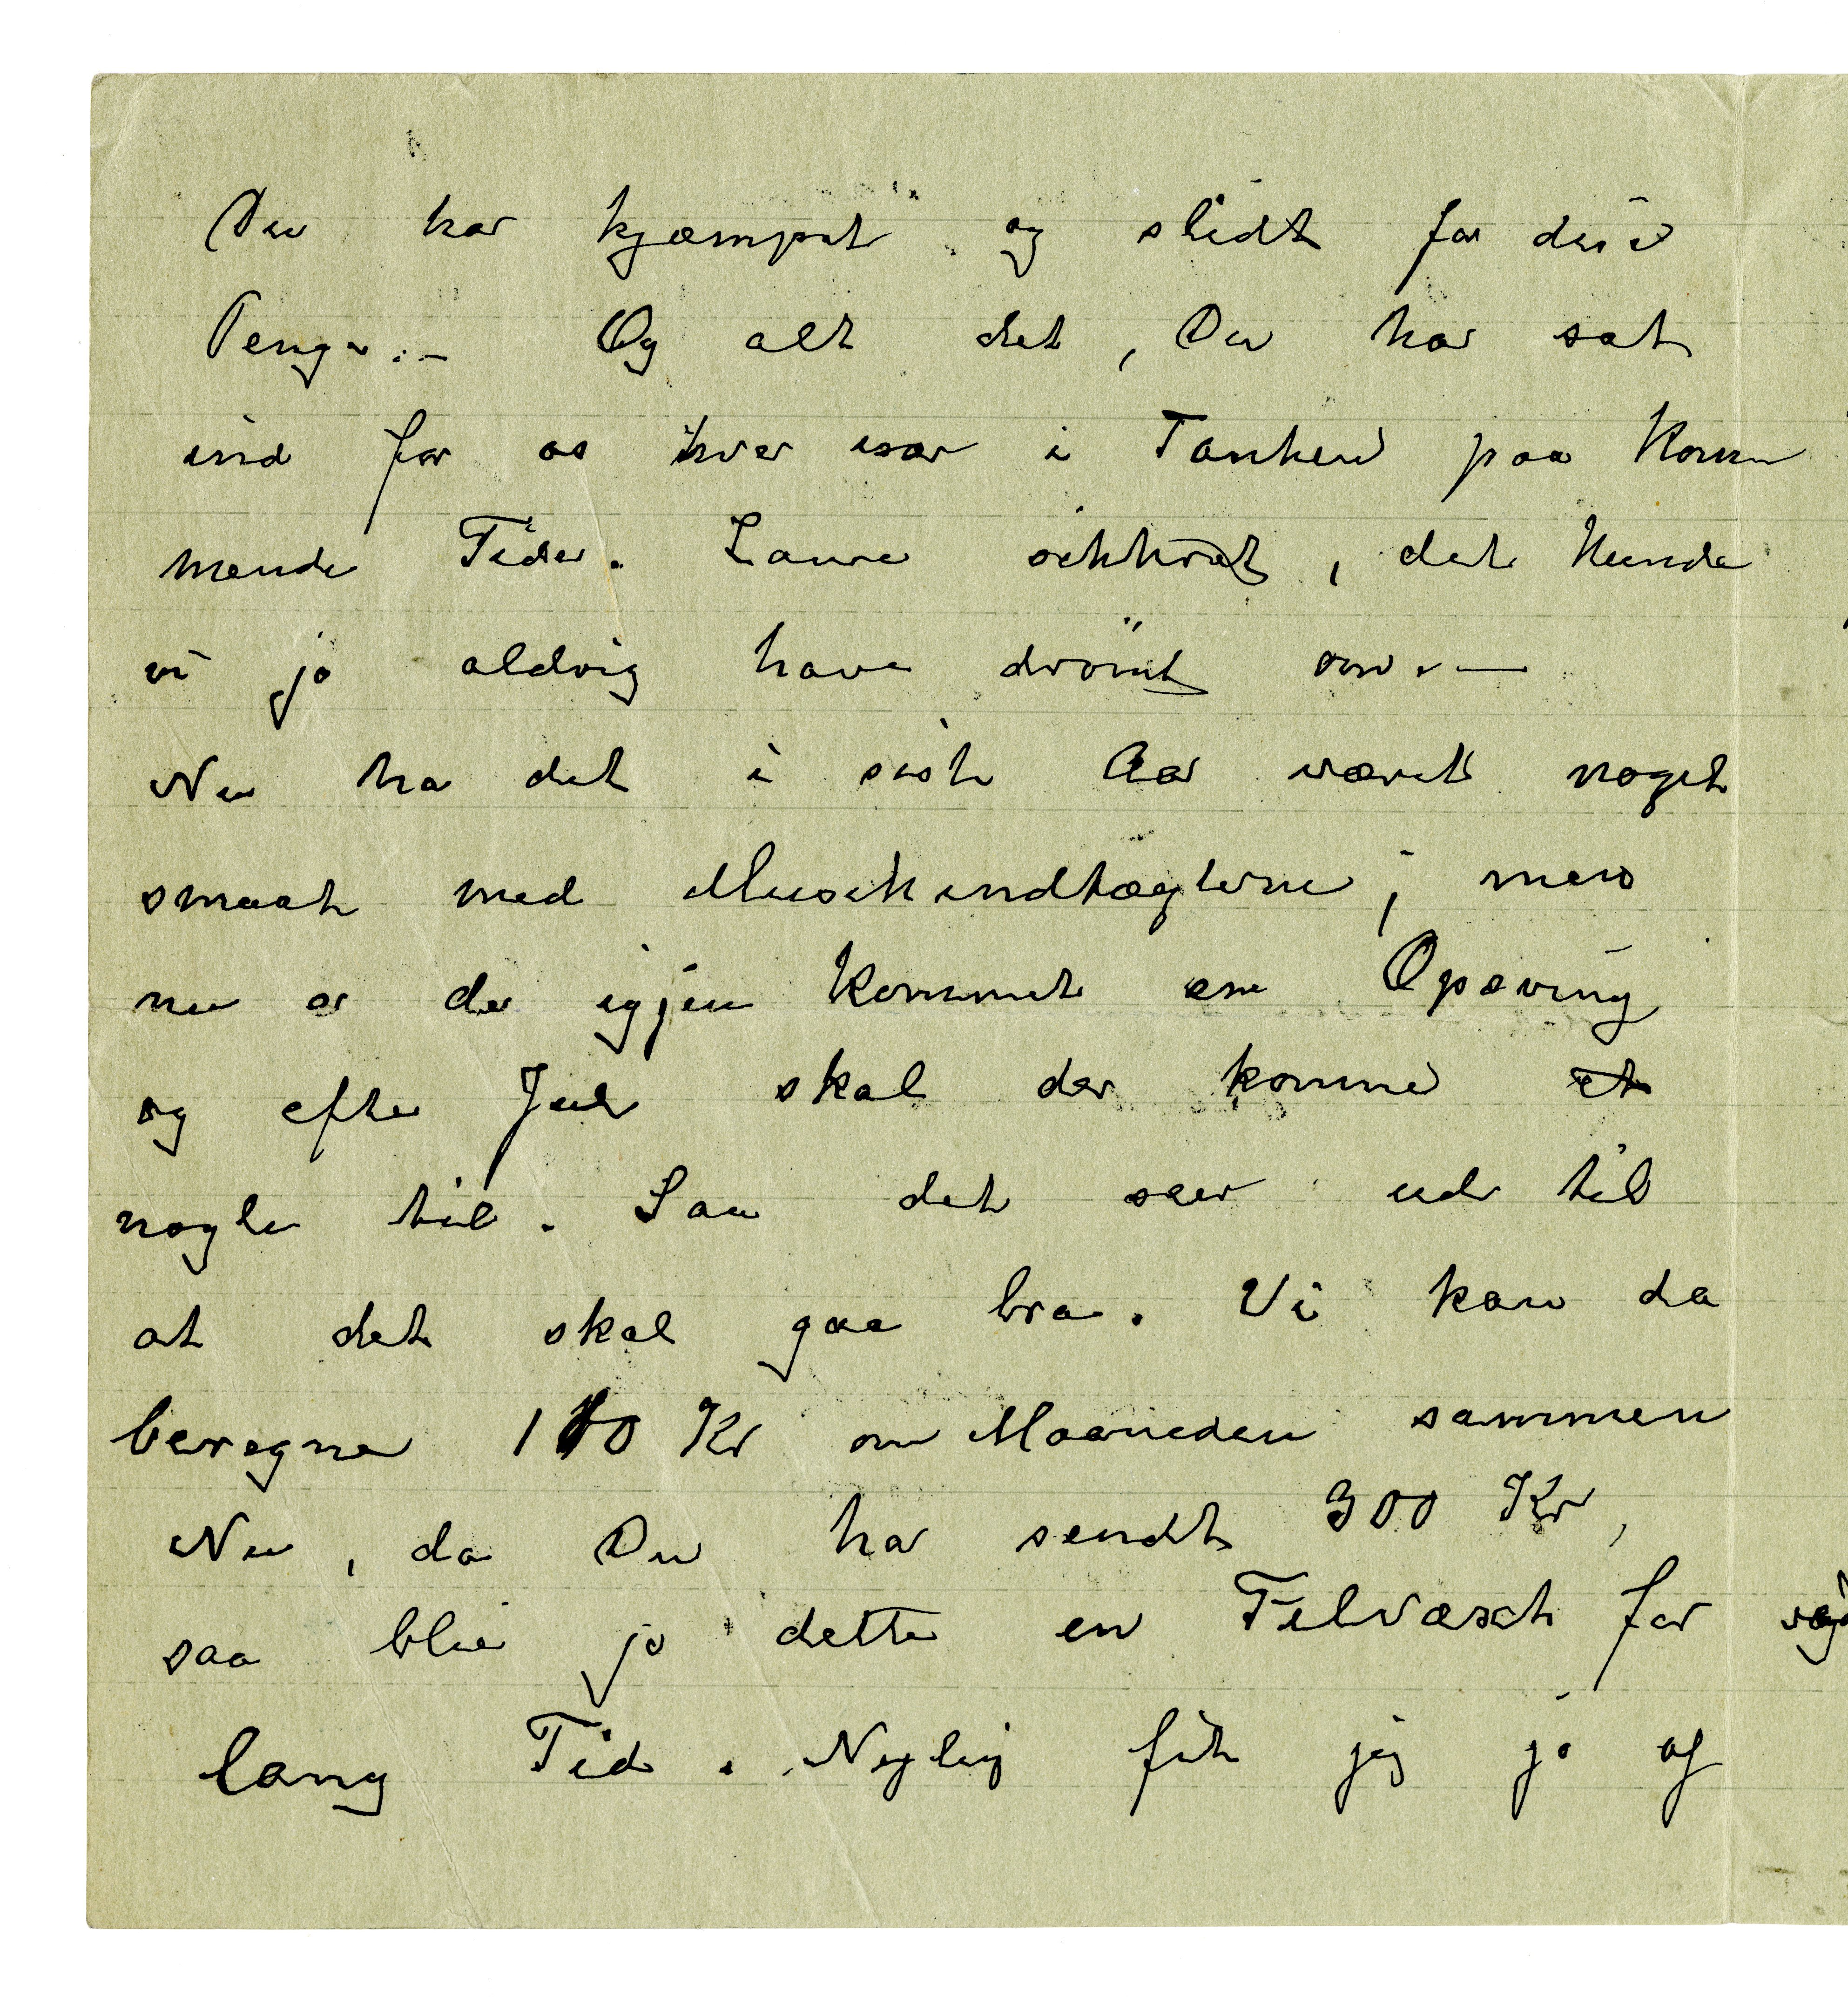 Du har kjæmpet og slidt for disse
Penge.— Og alt det, Du har sat
ind for os hver især i Tanken paa Kom
mende Tider. Laura sikkret, det kunde
vi jo aldrig have drömt om.—
Nu ha det i sist Aar været noget
smaat med Musikindtægterne; men
nu er der igjen kommet en Opsving
og efter Jul skal der komme et
nogle til. Saa det ser ud til
at det skal gaa bra. Vi kan da
beregne 110 Kr om Maaneden sammen
Nu, da Du har sendt 300 Kr,
saa blir jo dette en Tilvæxt for
lang Tid. Nylig fik jeg jo af